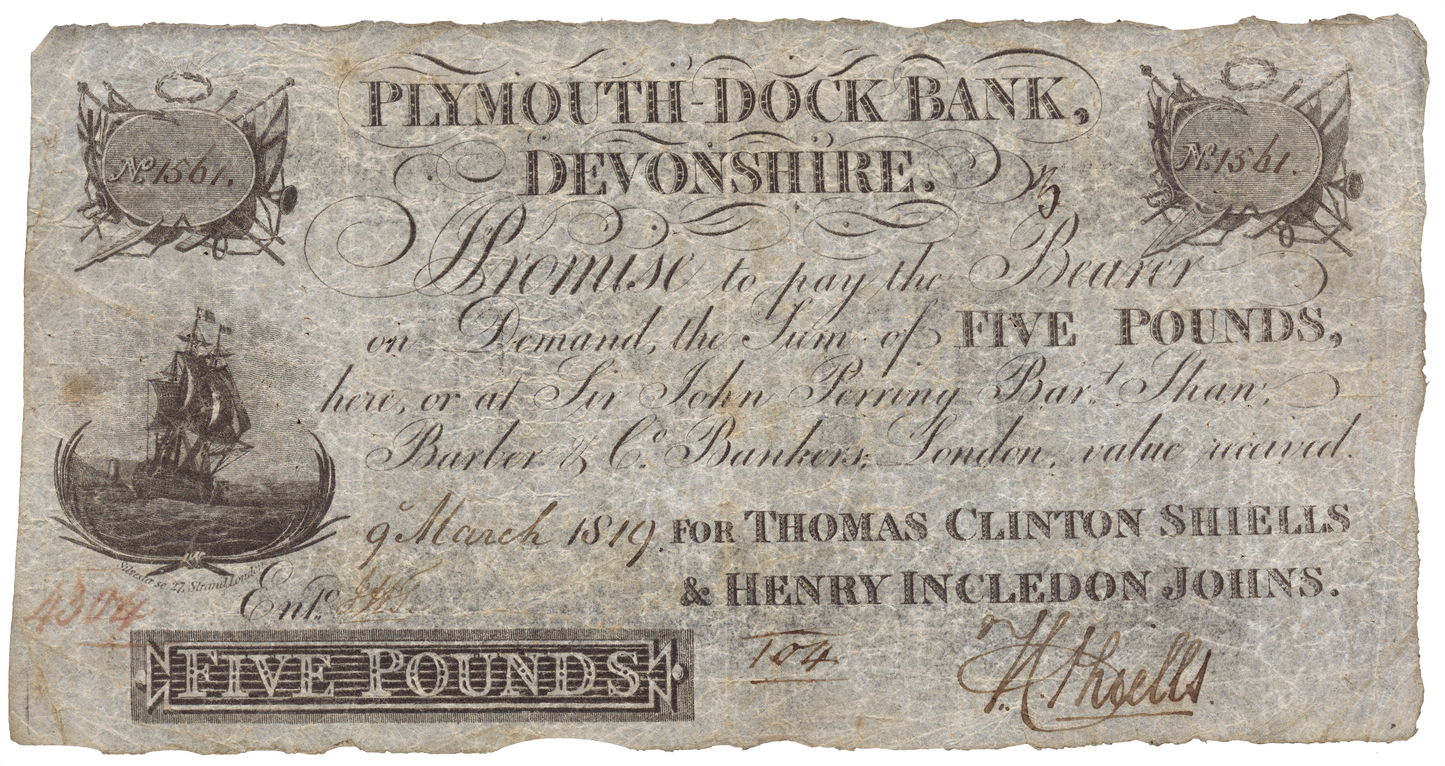 PLYMOUTH-DOCK BANK,
DEVONSHIRE.
No. 1561.
No. 1561.
I Promise to pay the Bearer
on Demand, the Sum of FIVE POUNDS,
here, or at Sir John Perring Bar.t Shaw,
Barber & C.o Bankers, London, value received.
9 March 1819. FOR THOMAS CLINTON SHIELLS
& HENRY INCLEDON JOHNS.
Silvester sc. 27, Strand, London
Ent.d
4304
FIVE POUNDS
104
Shiells